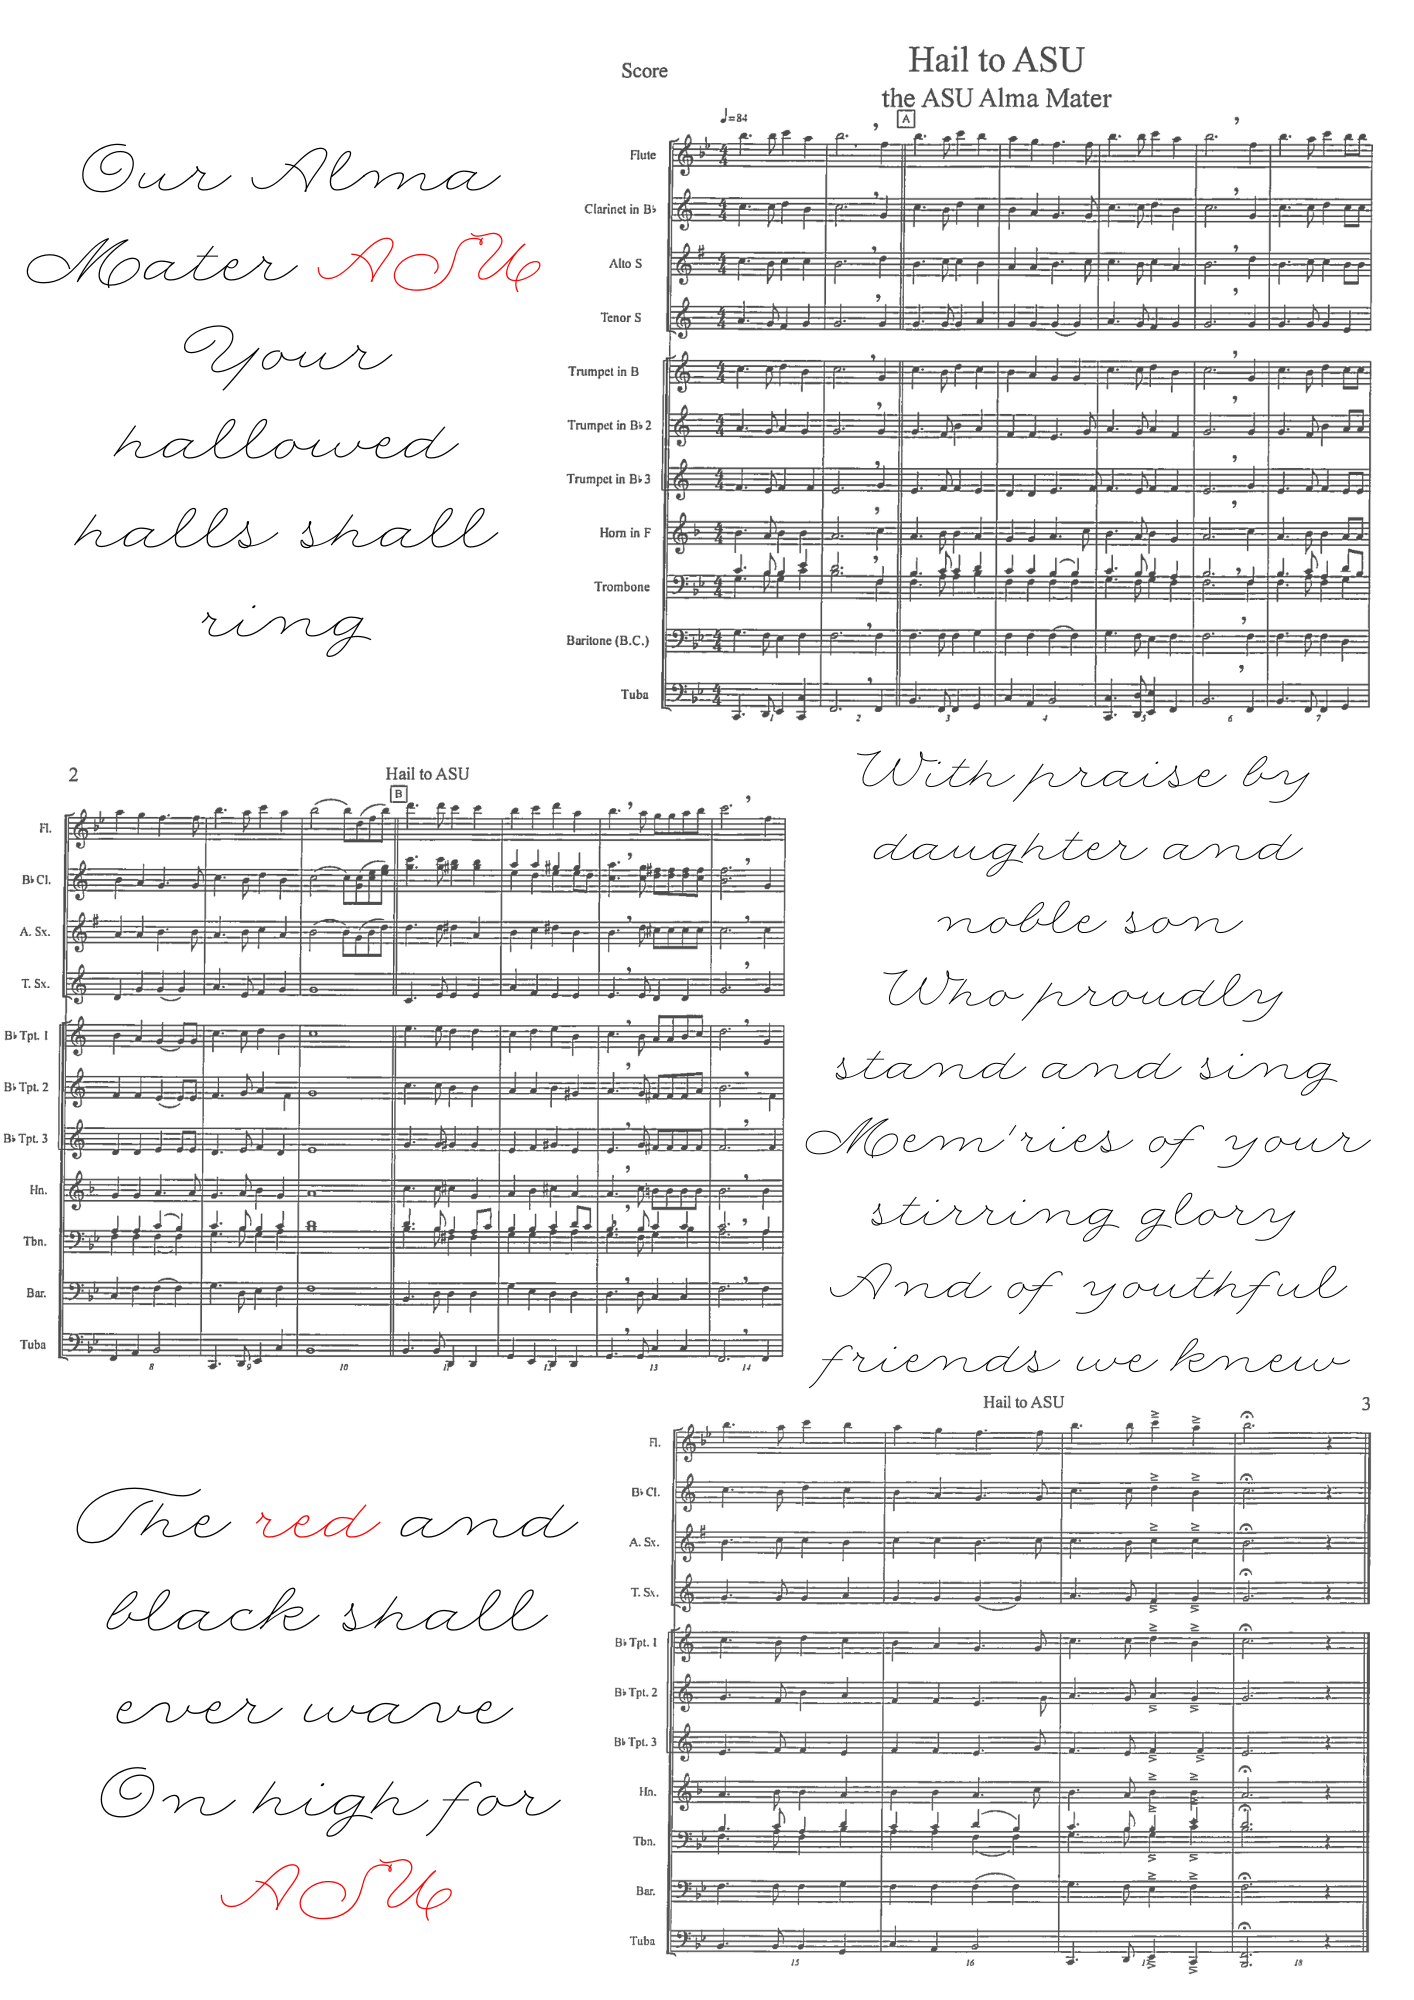 Score
Hail to ASU
the ASU Alma Mater
♩=84
A
Flute
Clarinet in B♭
Alto S
Tenor S
Trumpet in B
Trumpet in B♭ 2
Trumpet in B♭ 3
Horn in F
Trombone
Baritone (B.C.)
Tuba
1 2 3 4 5 6 7
Our Alma
Mater ASU
Your
hallowed
halls shall
ring
2
Hail to ASU
B
Fl.
B♭ Cl.
A. Sx.
T. Sx.
B♭ Tpt. 1
B♭ Tpt. 2
B♭ Tpt. 3
Hn.
Tbn.
Bar.
Tuba
8 9 10 11 12 13 14
With praise by
daughter and
noble son
Who proudly
stand and sing
Mem'ries of your
stirring glory
And of youthful
friends we knew
The red and
black shall
ever wave
On high for
ASU
Hail to ASU
3
Fl.
B♭ Cl.
A. Sx.
T. Sx.
B♭ Tpt. 1
B♭ Tpt. 2
B♭ Tpt. 3
Hn.
Tbn.
Bar.
Tuba
15 16 17 18